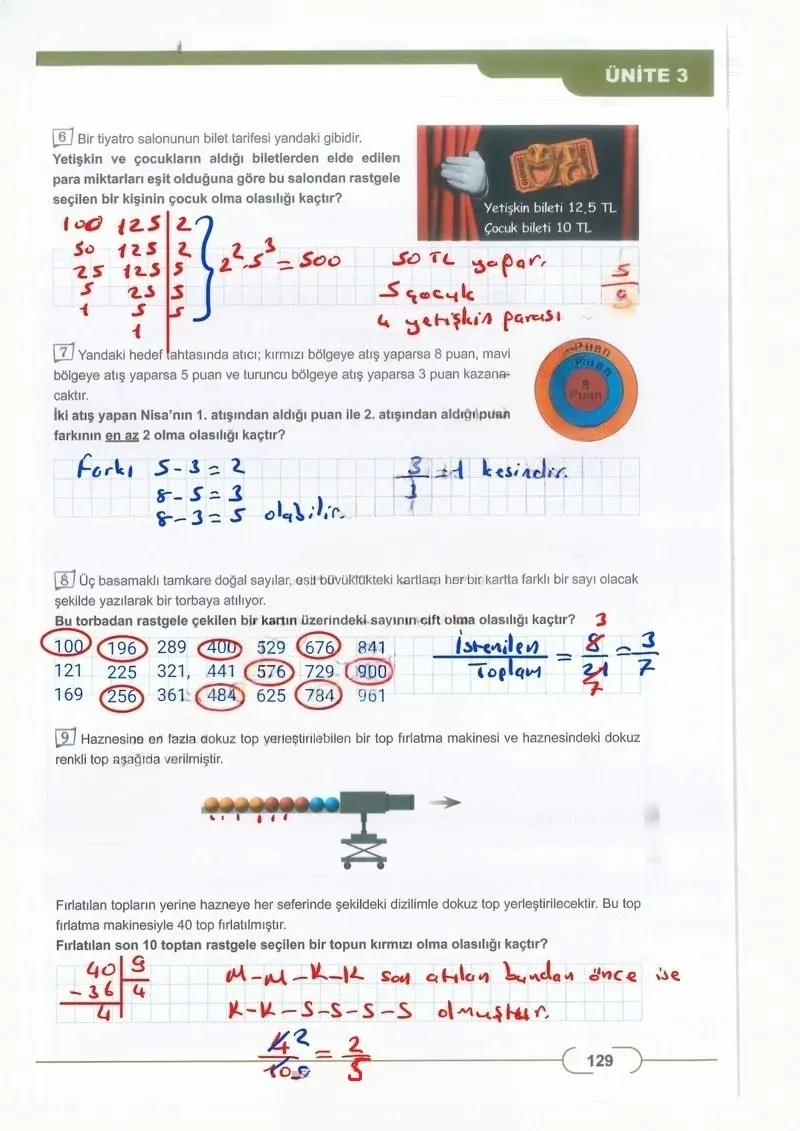 ÜNİTE 3
6 Bir tiyatro salonunun bilet tarifesi yandaki gibidir.
Yetişkin ve çocukların aldığı biletlerden elde edilen
para miktarları eşit olduğuna göre bu salondan rastgele
seçilen bir kişinin çocuk olma olasılığı kaçtır?
Yetişkin bileti 12,5 TL
Çocuk bileti 10 TL
100 125 2
50 125 2
25 125 5
5 25 5
1 5 5
1
2².5³ = 500
50 TL yapar.
5 çocuk
4 yetişkin parası
5
9
7 Yandaki hedef tahtasında atıcı; kırmızı bölgeye atış yaparsa 8 puan, mavi
bölgeye atış yaparsa 5 puan ve turuncu bölgeye atış yaparsa 3 puan kazana-
caktır.
İki atış yapan Nisa'nın 1. atışından aldığı puan ile 2. atışından aldığı puan
farkının en az 2 olma olasılığı kaçtır?
Puan
Puan
8
Puan
Farkı 5-3=2
8-5=3
8-3=5 olabilir.
3/3 = 1 kesindir.
8 Üç basamaklı tamkare doğal sayılar, eşit büyüklükteki kartlara her bir kartta farklı bir sayı olacak
şekilde yazılarak bir torbaya atılıyor.
Bu torbadan rastgele çekilen bir kartın üzerindeki sayının çift olma olasılığı kaçtır?
100 196 289 400 529 676 841
121 225 321, 441 576 729 900
169 256 361 484 625 784 961
3
İstenilen/Toplam = 8/21 = 3/7
7
9 Haznesine en fazla dokuz top yerleştirilebilen bir top fırlatma makinesi ve haznesindeki dokuz
renkli top aşağıda verilmiştir.
Fırlatılan topların yerine hazneye her seferinde şekildeki dizilimle dokuz top yerleştirilecektir. Bu top
fırlatma makinesiyle 40 top fırlatılmıştır.
Fırlatılan son 10 toptan rastgele seçilen bir topun kırmızı olma olasılığı kaçtır?
40 9
-36 4
4
M-M-K-K son atılan bundan önce ise
K-K-S-S-S-S olmuştur.
4 2/10 5 = 2/5
129